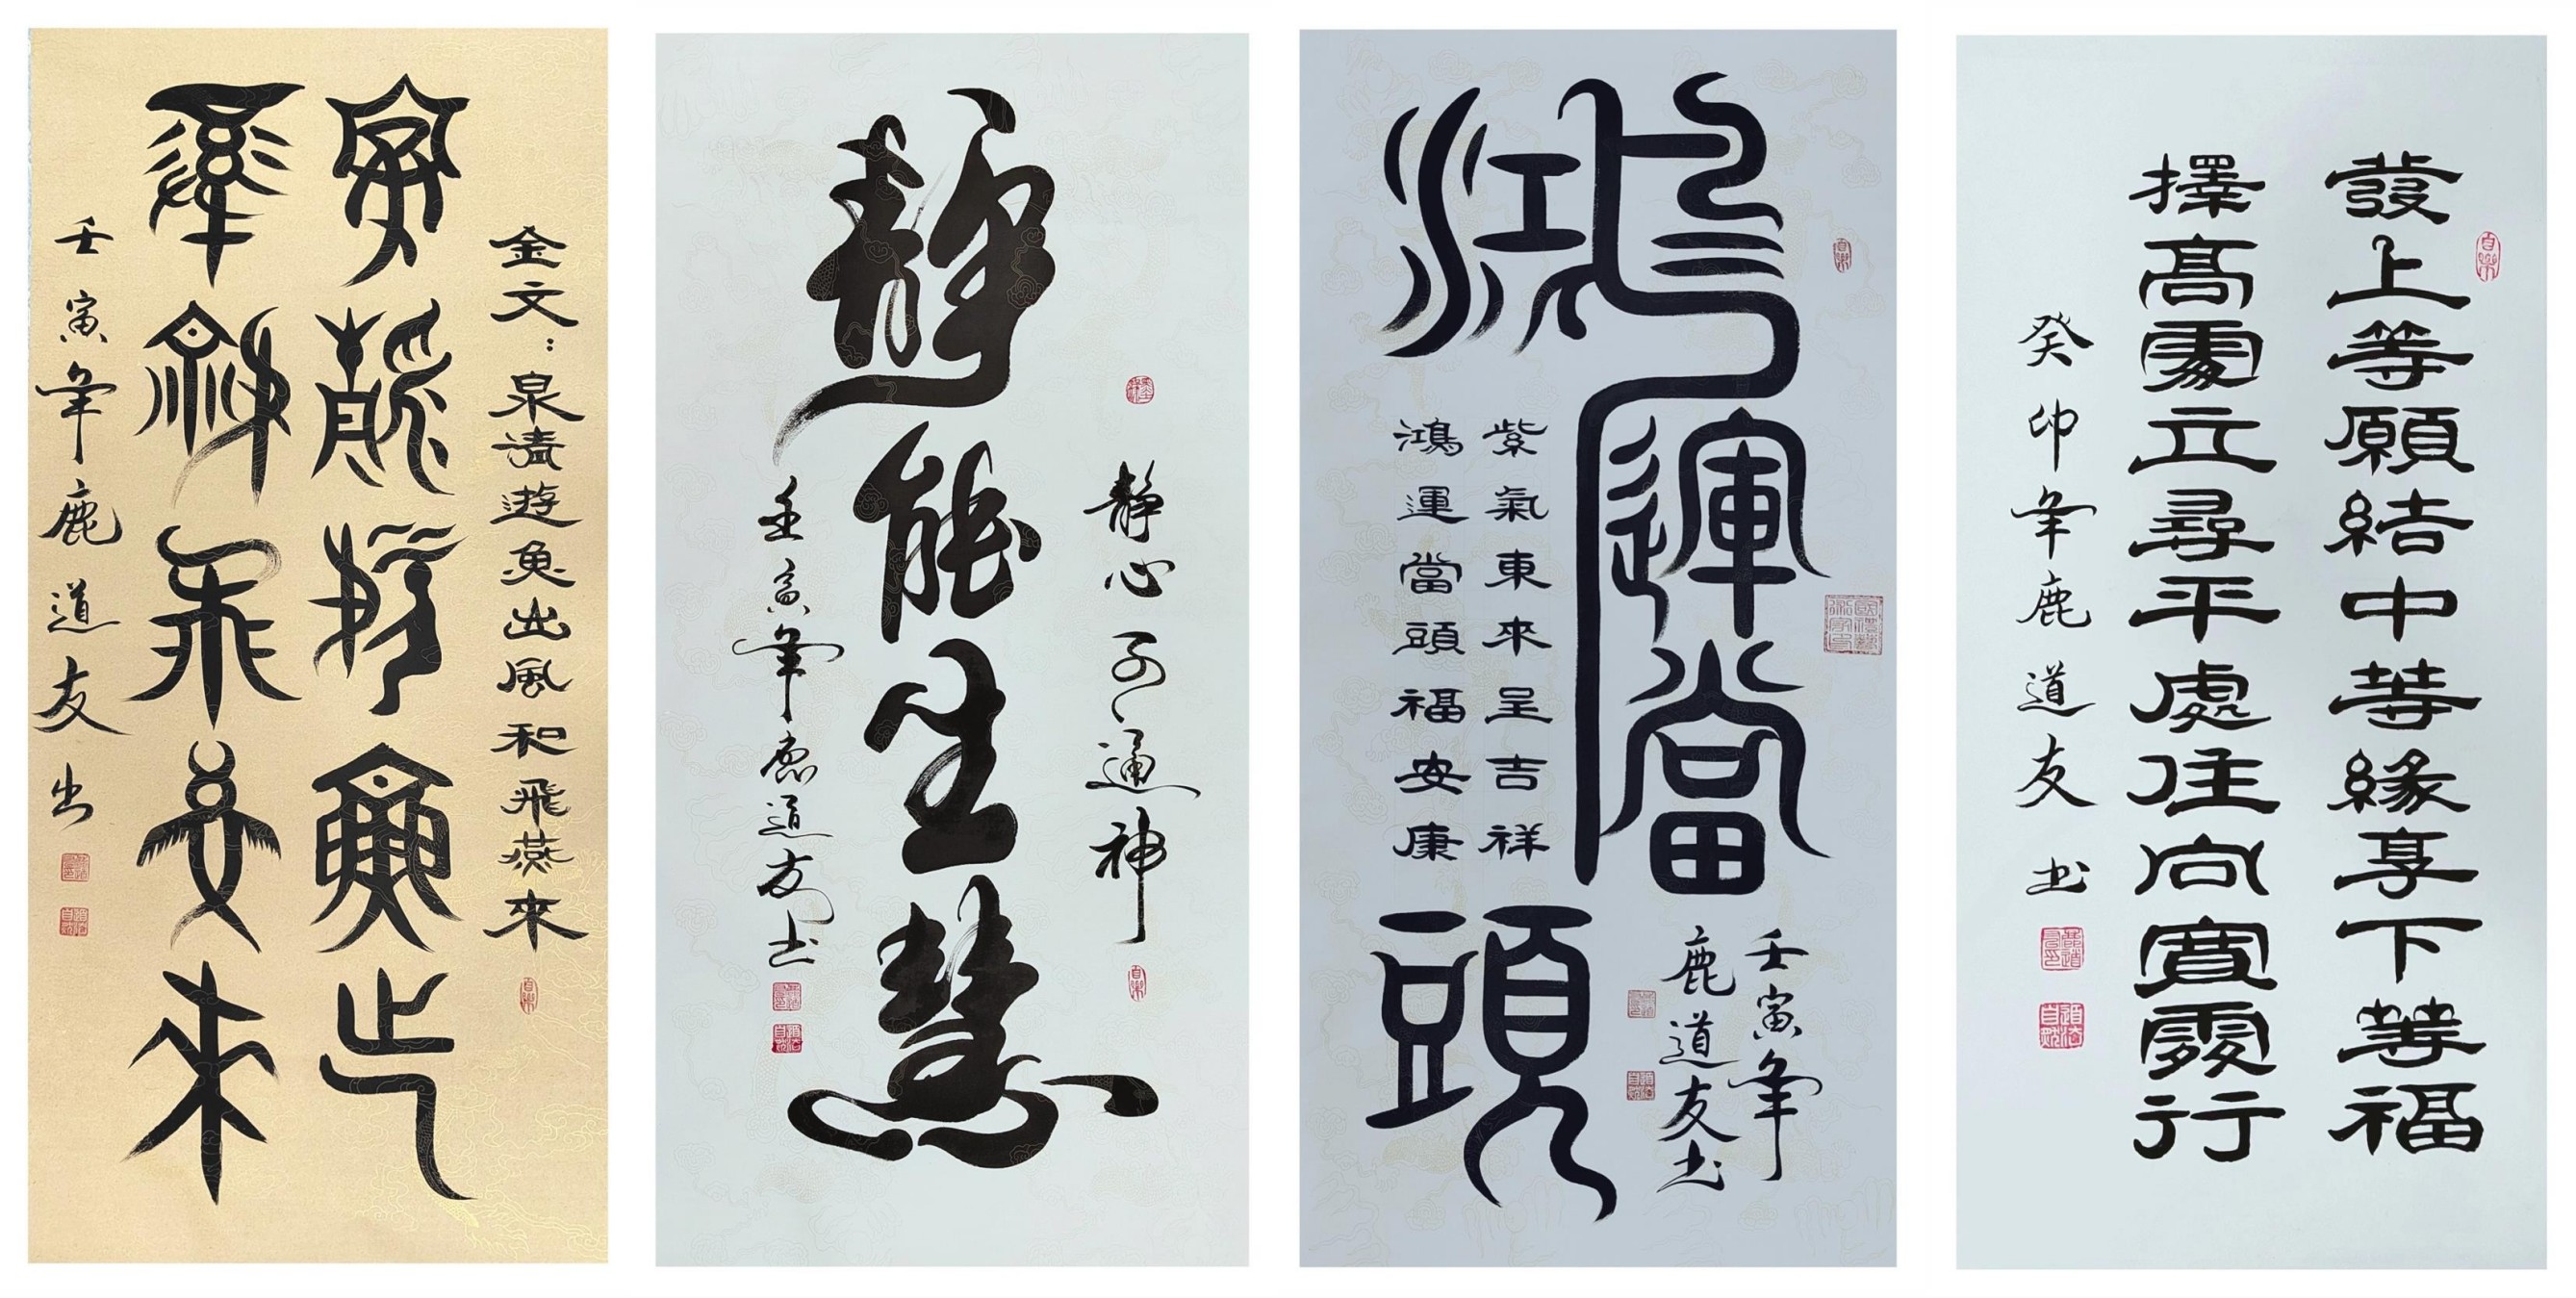 金文：泉清遊魚出風和飛燕來
泉清游魚出
風和飛燕來
壬寅年鹿道友书
静心可通神
靜能生慧
壬寅年鹿道友书
鴻運當頭
紫氣東來呈吉祥
鴻運當頭福安康
壬寅年
鹿道友书
發上等願結中等緣享下等福
擇高處立尋平處住向寬處行
癸卯年鹿道友书